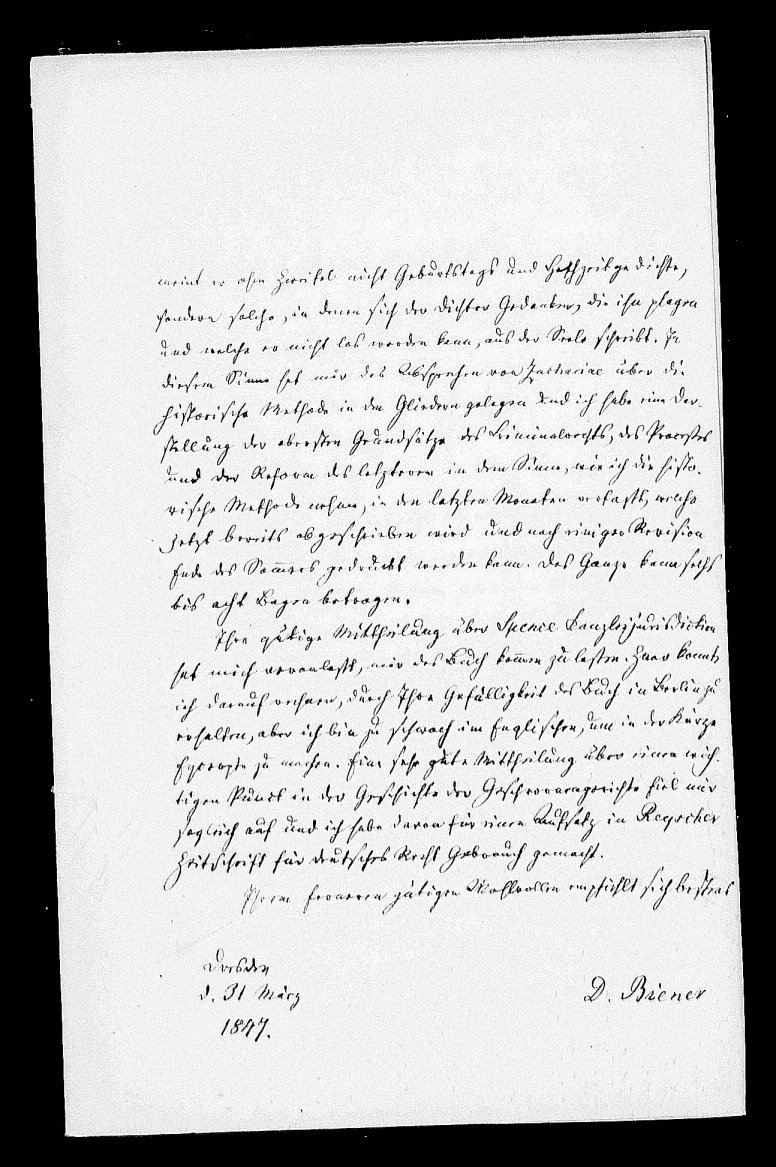 meint er ohne Zweifel nicht Geburtstags und Hochzeitgedichte,
sondern solche, in denen sich der Dichter Gedanken, die ihn plagen
und welche er nicht los werden kann, aus der Seele schreibt. In
diesem Sinne hat mir das Absprechen von Zachariae über die
historische Methode in den Gliedern gelegen und ich habe eine Dar-
stellung der obersten Grundsätze des Criminalrechts, des Processes
und der Reform des letzteren in dem Sinne, wie ich die histo-
rische Methode nehme, in den letzten Monaten verfaßt, welche
jetzt bereits abgeschrieben wird und nach einiger Revision
Ende des Sommers gedruckt werden kann. Das Ganze kann sechs
bis acht Bogen betragen.
Ihre gütige Mittheilung über Spence Canzleyjurisdiction
hat mich veranlaßt, mir das Buch kommen zu lassen. Zwar konnte
ich darauf rechnen, durch Ihre Gefälligkeit das Buch in Berlin zu
erhalten, aber ich bin zu schwach im Englischen, um in der Kürze
Excerpte zu machen. Eine sehr gute Mittheilung über einen wich-
tigen Punct in der Geschichte der Geschworenengerichte fiel mir
sogleich auf und ich habe davon für einen Aufsatz in Reyscher
Zeitschrift für deutsches Recht Gebrauch gemacht.
Ihrem ferneren gütigen Wohlwollen empfiehlt sich bestens
Dresden
d. 31 März
1847.
D. Biener